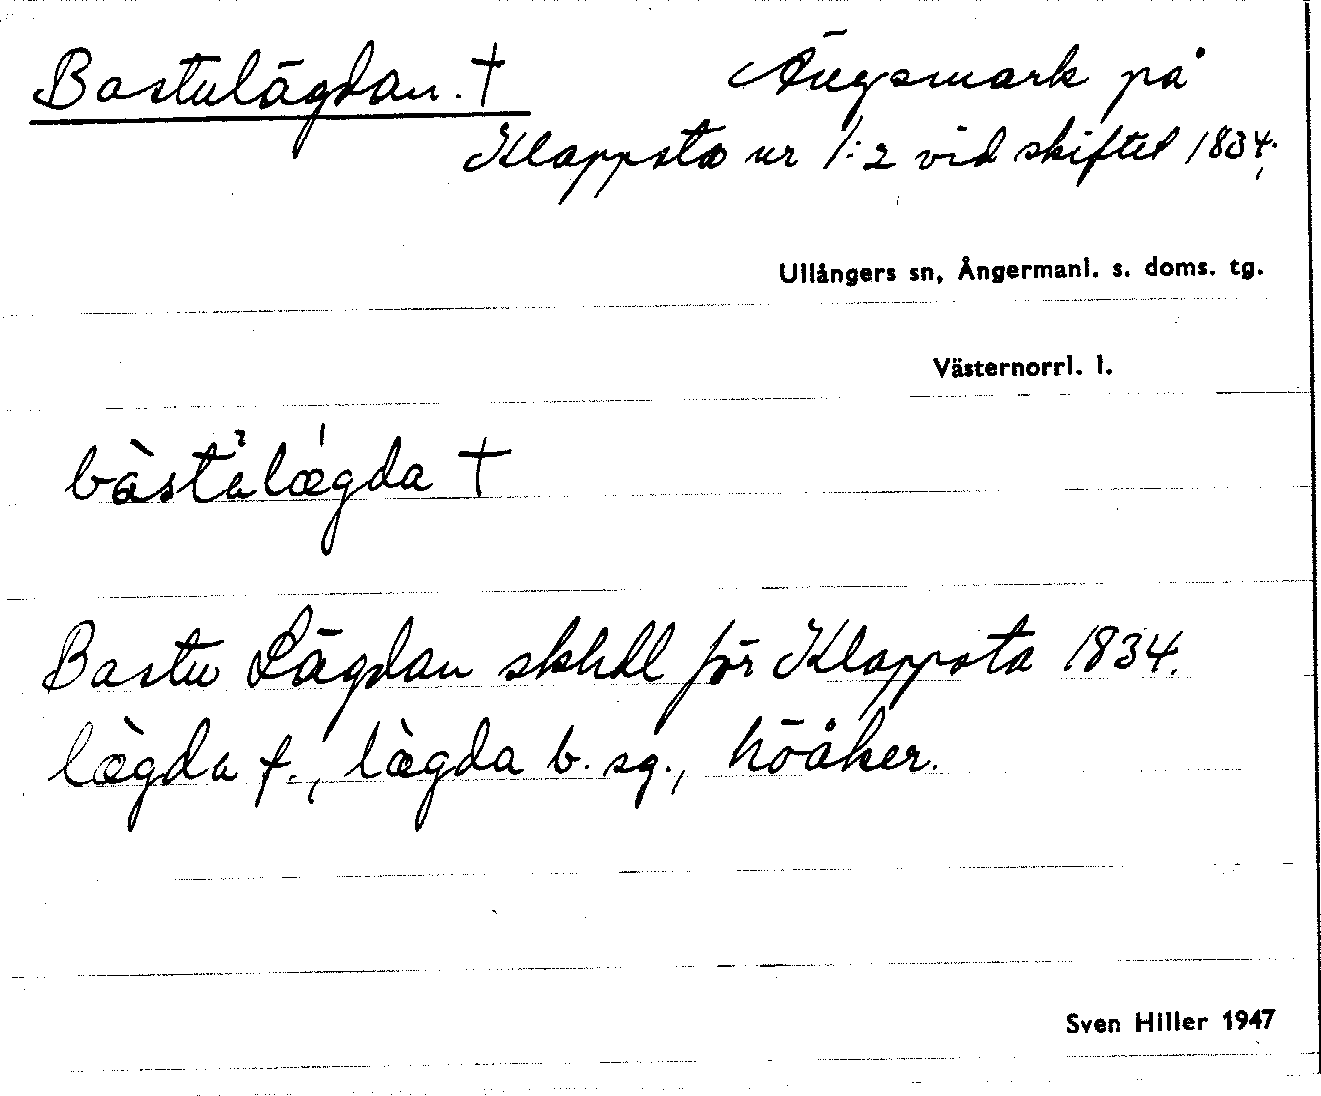 Bastulägdan. † Ängsmark på
Klappsta nr 1:2 vid skiftet 1834.
Ullångers sn, Ångermanl. s. doms. tg.
Västernorrl. l.
bàstalægda †
Bastu Lägdan skhdl för Klappsta 1834.
lægda f., lægda b. sg., höåker.
Sven Hiller 1947